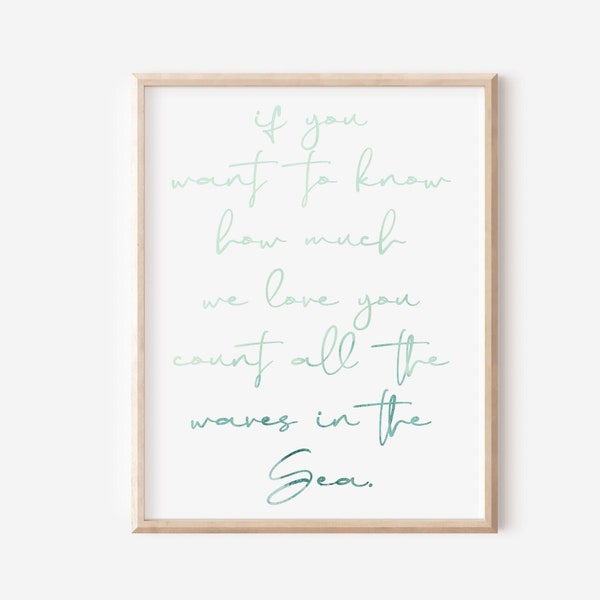 if you
want to know
how much
we love you
count all the
waves in the
Sea.